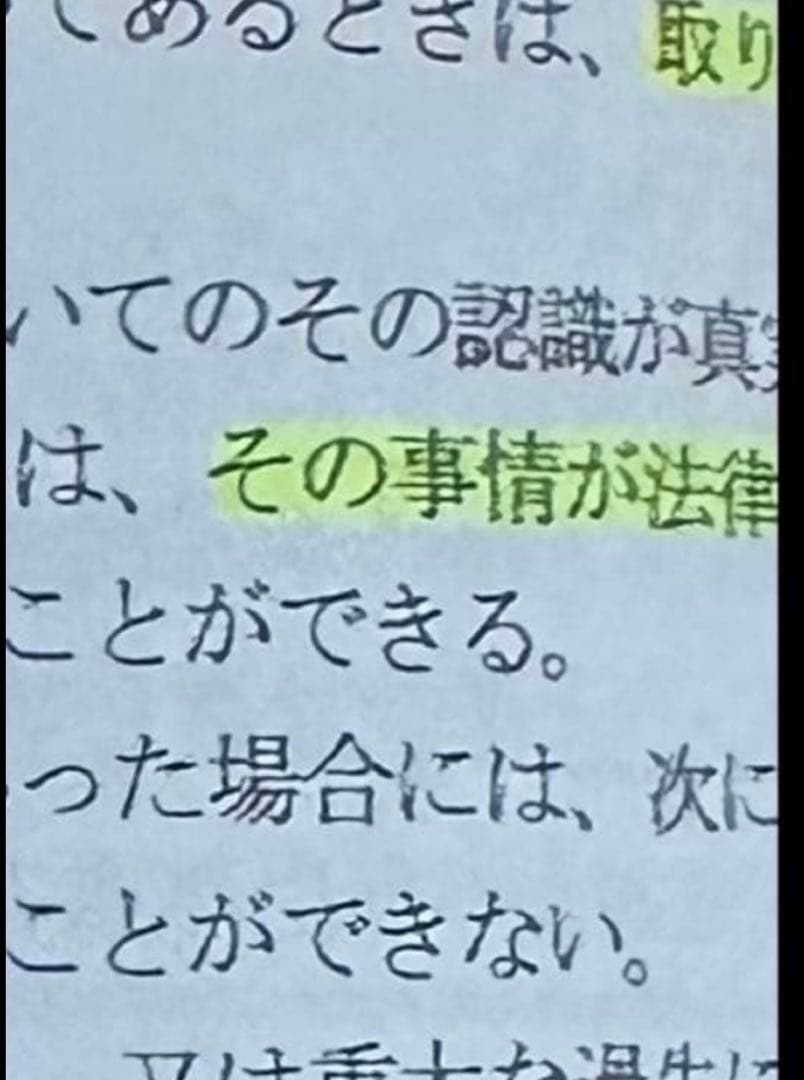 てあるときは、取り
いてのその認識が真実
は、その事情が法律
ことができる。
った場合には、次に
ことができない。
又は重大な過失に